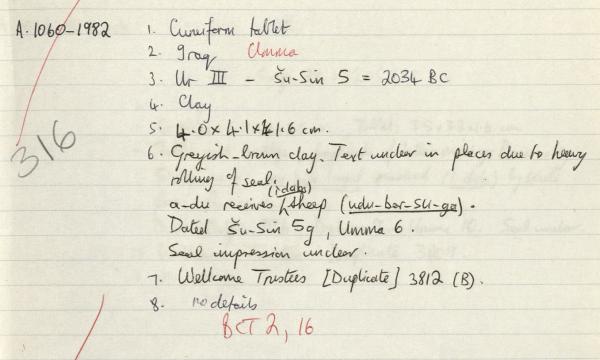 A. 1060-1982
1. Cuneiform tablet
2. Iraq Umma
3. Ur III - Šu-Sin 5 = 2034 BC
4. Clay
5. 4.0 x 4.1 x 1.6 cm.
316
6. Greyish-brown clay. Text unclear in places due to heavy
rolling of seal.
(i-dab5)
a-du receives sheep (udu-bar-su-ga).
Dated Šu-Sin 5g, Umma 6.
Seal impression unclear.
7. Wellcome Trustees [Duplicate] 3812 (B).
8. no details
BCT 2, 16